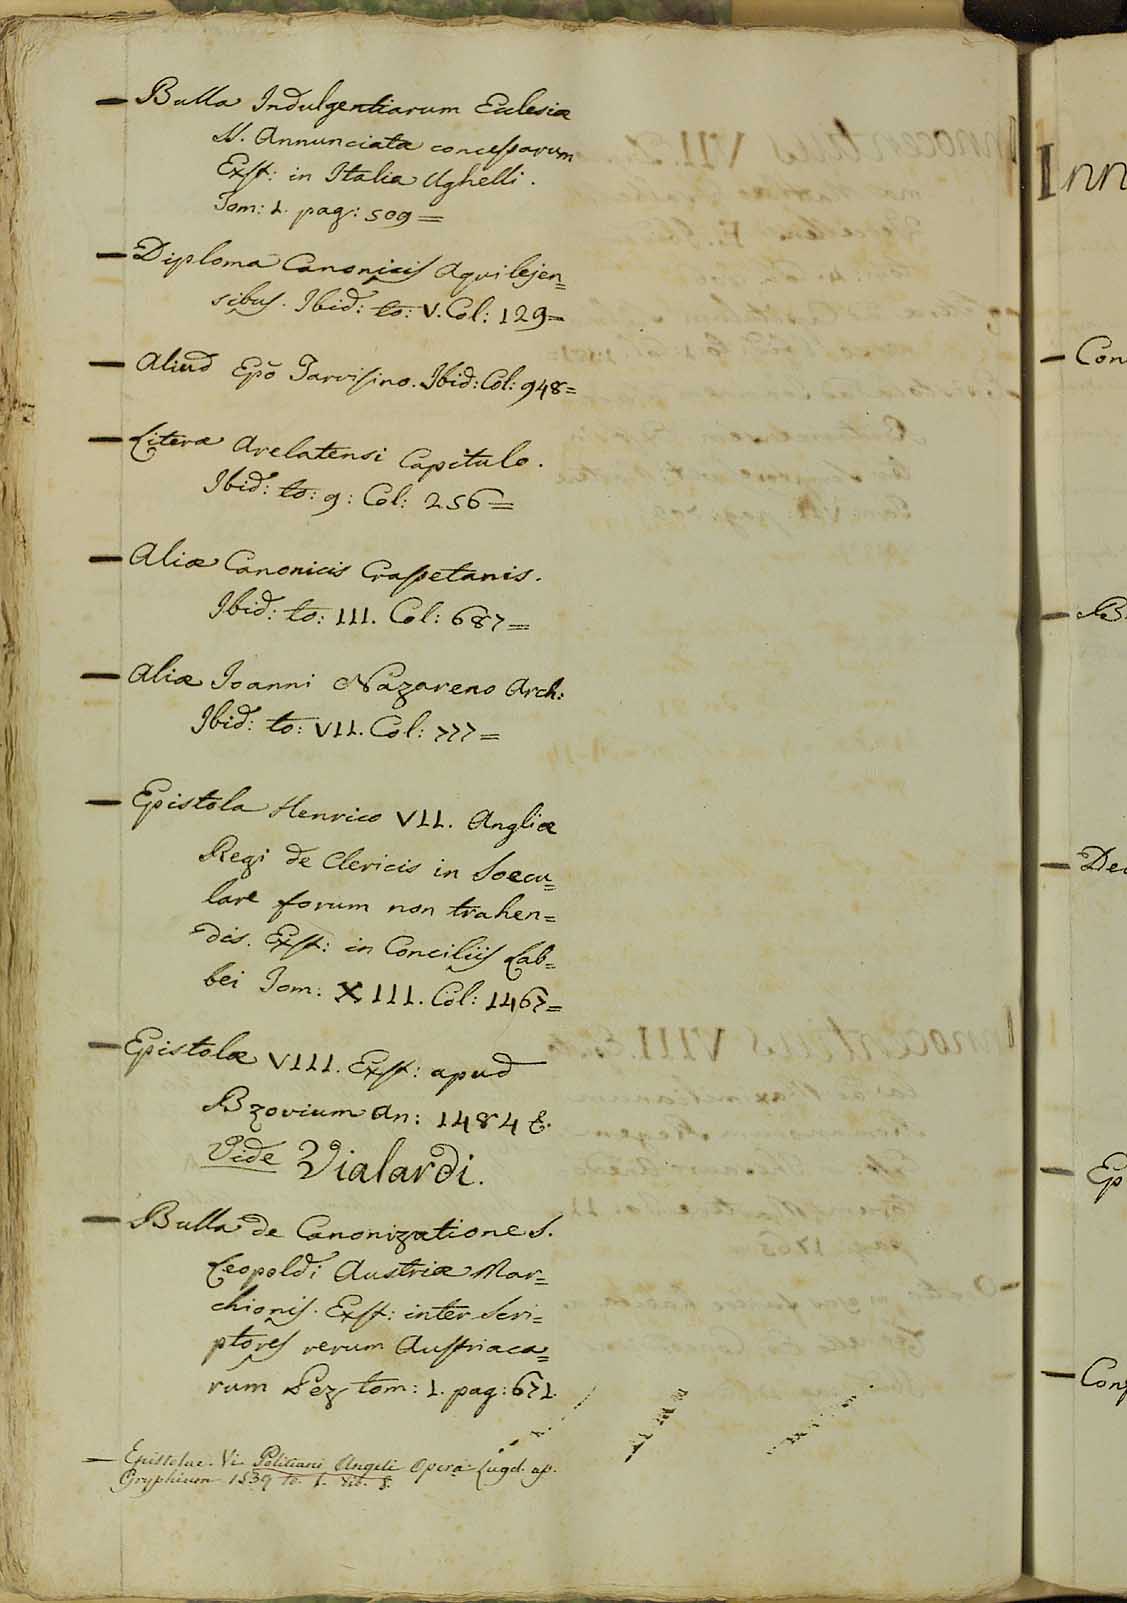 — Bulla Indulgentiarum Eclesiæ
SS. Annunciatæ concessarum
Exst: in Italia Ughelli.
Tom: 1. pag: 509=
— Diploma Canonicis Aquilejen=
sibus. Ibid: to: V. Col: 129=
— Aliud Epõ Tarvisino. Ibid: Col: 948=
— Literæ Arelatensi Capitulo.
Ibid: to: 9: Col: 256=
— Aliæ Canonicis Crassetanis.
Ibid: to: III. Col: 687=
— Aliæ Joanni Nazareno Arch:
Ibid: to: VII. Col: 777=
— Epistola Henrico VII. Angliæ
Regi de Clericis in Soecu=
lare forum non trahen=
dis. Exst: in Conciliis Lab=
bei Tom: XIII. Col: 1467=
— Epistolæ VIII. Exst: apud
Bzovium An: 1484 &.
Vide Vialardi.
— Bulla de Canonizatione S.
Leopoldi Austriæ Mar=
chionis. Exst: inter Scri=
ptores rerum Austriaca=
rum Pez tom: 1. pag: 671.
— Epistolae. Vi. Politiani Angeli Opera Lugd. ap.
Gryphium 1539 to. 1. lib. 8.
Inn
— Con
— B
— Dec
— Ep
— Conf